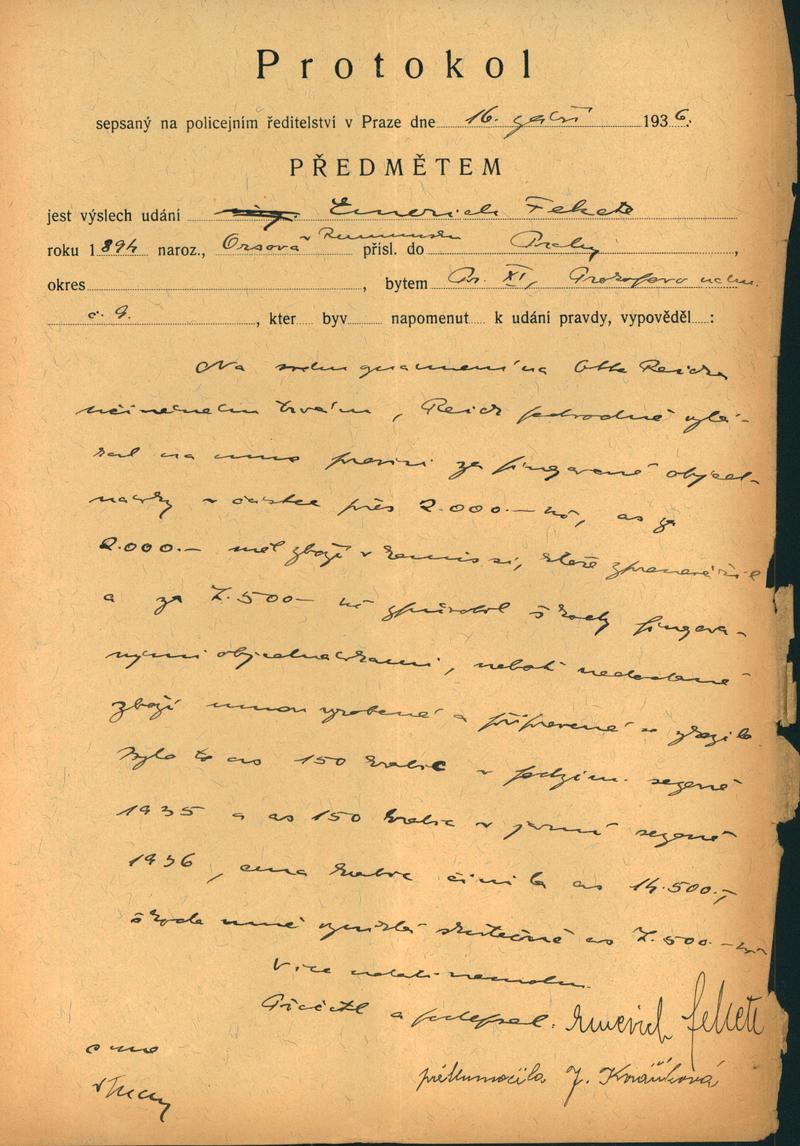 Protokol
sepsaný na policejním ředitelství v Praze dne 16. září 1936.
PŘEDMĚTEM
jest výslech udání Emerich Fekete
roku 1894 naroz., Orsova v Rumunsku přísl. do Prahy,
okres , bytem Pr. XI, Prokopovo nám.
č. 9. , kter byv napomenut k udání pravdy, vypověděl :
Na svém oznámení na Otto Reicha
učiněném trvám, Reich podvodně vylá-
kal na mne provisi za fingované objed-
návky v částce přes 2.000.- Kč, as za
2.000.- měl zboží v komissi, které zpronevěřil
a za 7.500- Kč způsobil škody fingova-
nými objednávkami, neboť nedodané
zboží mnou vyrobené a připravené se zkazilo
Bylo to as 150 krabic v podzim. sezoně
1935 a as 150 krabic v jarní sezoně
1936, cena krabic činila as 14.500.-,
škoda mně vznikla skutečně as 7.500.- Kč
Více udati nemohu.
Přečetl a podepsal. Emerich Fekete
přetlumočila J.